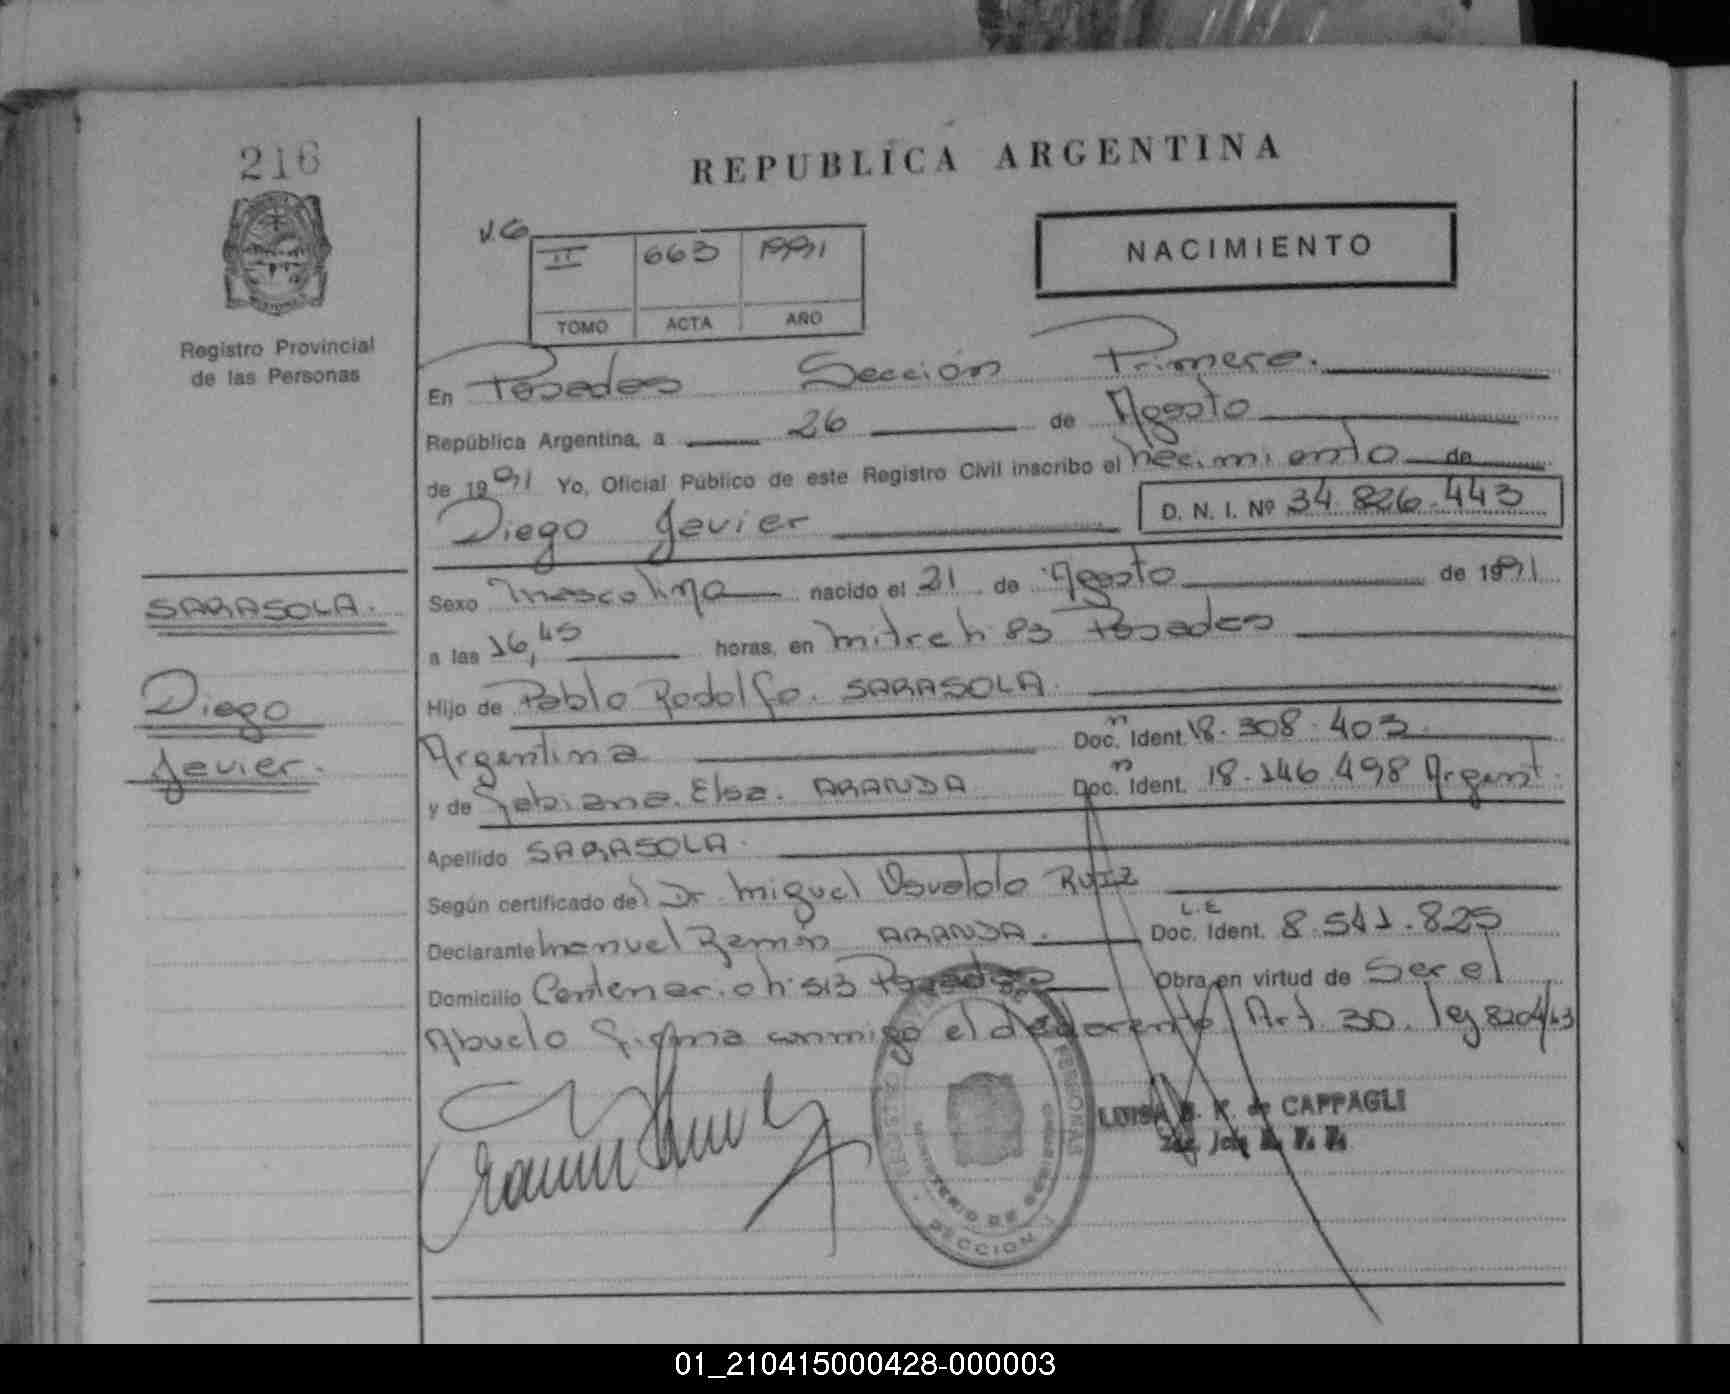 216
REPUBLICA ARGENTINA
NACIMIENTO
II 663 1991
TOMO ACTA AÑO
Registro Provincial
de las Personas
En Posadas Sección Primera.
República Argentina, a 26 de Agosto
de 1991 Yo, Oficial Público de este Registro Civil inscribo el nacimiento de
Diego Javier D. N. I. Nº 34.826.443
SARASOLA.
Diego
Javier.
Sexo masculino nacido el 21 de Agosto de 1991
a las 16,45 horas, en mitre n: 83 Posadas
Hijo de Pablo Rodolfo. SARASOLA.
Argentina Doc. n Ident. 18.308.403
y de Fabiana Elsa. ARANDA Doc. n Ident. 18.146.498 Argent.
Apellido SARASOLA.
Según certificado del Dr. Miguel Osvaldo RUIZ
Declarante manuel Ramón ARANDA. L.E Doc. Ident. 8.541.825
Domicilio Centenario n: 513 Posadas Obra en virtud de Ser el
Abuelo firma conmigo el declarante Art 30. ley 8204/63
LUISA de CAPPAGLI
MINISTERIO DE GOBIERNO
SECCION 1
01_210415000428-000003